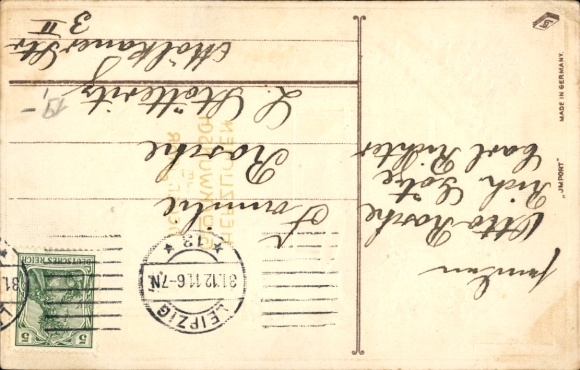 Familie
Rasche
L. Stötteritz
Möltkauer Str
3 II
19,-
Otto Rasche
Rich Götze
Carl Richter
LEIPZIG
31.12.11.6-7N.
* 13 *
DEUTSCHES REICH
5
5
HERZLICHEN
GLÜCKWUNSCH
"IMPORT"
MADE IN GERMANY.